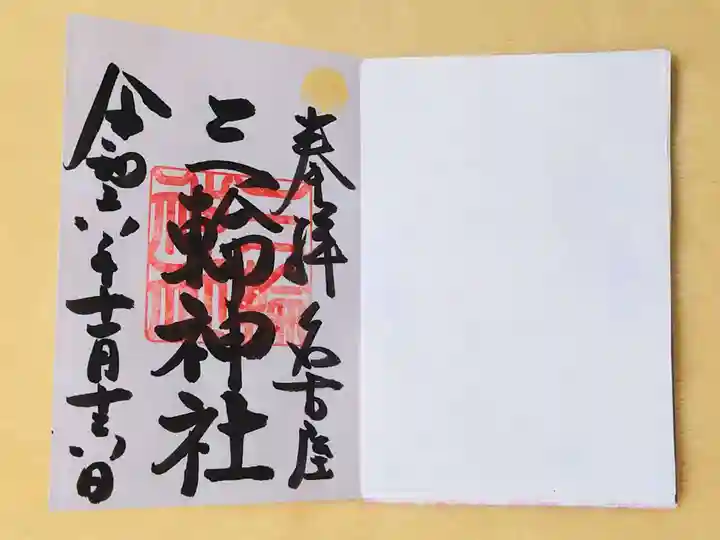 奉拝 名古屋
三輪神社
令和六年十一月十六日